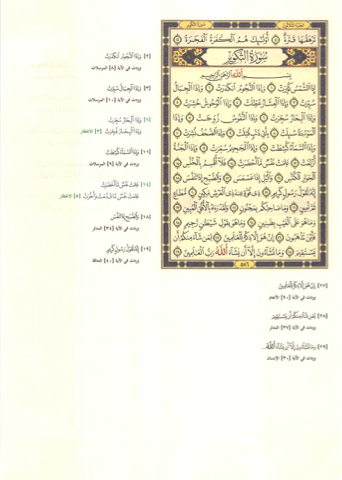 تَرْهَقُهَا قَتَرَةٌ ٤١ أُولَٰئِكَ هُمُ الْكَفَرَةُ الْفَجَرَةُ ٤٢
سُورَةُ التَّكْوِيرِ
بِسْمِ اللَّهِ الرَّحْمَٰنِ الرَّحِيمِ
إِذَا الشَّمْسُ كُوِّرَتْ ١ وَإِذَا النُّجُومُ انْكَدَرَتْ ٢ وَإِذَا الْجِبَالُ
سُيِّرَتْ ٣ وَإِذَا الْعِشَارُ عُطِّلَتْ ٤ وَإِذَا الْوُحُوشُ حُشِرَتْ ٥
وَإِذَا الْبِحَارُ سُجِّرَتْ ٦ وَإِذَا النُّفُوسُ زُوِّجَتْ ٧ وَإِذَا
الْمَوْءُودَةُ سُئِلَتْ ٨ بِأَيِّ ذَنْبٍ قُتِلَتْ ٩ وَإِذَا الصُّحُفُ نُشِرَتْ ١٠
وَإِذَا السَّمَاءُ كُشِطَتْ ١١ وَإِذَا الْجَحِيمُ سُعِّرَتْ ١٢ وَإِذَا الْجَنَّةُ
أُزْلِفَتْ ١٣ عَلِمَتْ نَفْسٌ مَا أَحْضَرَتْ ١٤ فَلَا أُقْسِمُ بِالْخُنَّسِ ١٥
الْجَوَارِ الْكُنَّسِ ١٦ وَاللَّيْلِ إِذَا عَسْعَسَ ١٧ وَالصُّبْحِ إِذَا تَنَفَّسَ ١٨
إِنَّهُ لَقَوْلُ رَسُولٍ كَرِيمٍ ١٩ ذِي قُوَّةٍ عِنْدَ ذِي الْعَرْشِ مَكِينٍ ٢٠ مُطَاعٍ
ثَمَّ أَمِينٍ ٢١ وَمَا صَاحِبُكُمْ بِمَجْنُونٍ ٢٢ وَلَقَدْ رَآهُ بِالْأُفُقِ الْمُبِينِ ٢٣
وَمَا هُوَ عَلَى الْغَيْبِ بِضَنِينٍ ٢٤ وَمَا هُوَ بِقَوْلِ شَيْطَانٍ رَجِيمٍ ٢٥
فَأَيْنَ تَذْهَبُونَ ٢٦ إِنْ هُوَ إِلَّا ذِكْرٌ لِلْعَالَمِينَ ٢٧ لِمَنْ شَاءَ مِنْكُمْ أَنْ
يَسْتَقِيمَ ٢٨ وَمَا تَشَاءُونَ إِلَّا أَنْ يَشَاءَ اللَّهُ رَبُّ الْعَالَمِينَ ٢٩
٥٨٦
[٢] وَإِذَا النُّجُومُ انْكَدَرَتْ
وردت في الآية [٨] المرسلات
[٣] وَإِذَا الْجِبَالُ سُيِّرَتْ
وردت في الآية [١٠] المرسلات
[٦] وَإِذَا الْبِحَارُ سُجِّرَتْ
وَإِذَا الْبِحَارُ فُجِّرَتْ [٣] الانفطار
[١١] وَإِذَا السَّمَاءُ كُشِطَتْ
وردت في الآية [٩] المرسلات
[١٤] عَلِمَتْ نَفْسٌ مَا أَحْضَرَتْ
عَلِمَتْ نَفْسٌ مَا قَدَّمَتْ وَأَخَّرَتْ [٥] الانفطار
[١٨] وَالصُّبْحِ إِذَا تَنَفَّسَ
وردت في الآية [٣٤] المدثر
[١٩] إِنَّهُ لَقَوْلُ رَسُولٍ كَرِيمٍ
وردت في الآية [٤٠] الحاقة
[٢٧] إِنْ هُوَ إِلَّا ذِكْرٌ لِلْعَالَمِينَ
وردت في الآية [٩٠] الأنعام
[٢٨] لِمَنْ شَاءَ مِنْكُمْ أَنْ يَسْتَقِيمَ
وردت في الآية [٣٧] المدثر
[٢٩] وَمَا تَشَاءُونَ إِلَّا أَنْ يَشَاءَ اللَّهُ...
وردت في الآية [٣٠] الإنسان